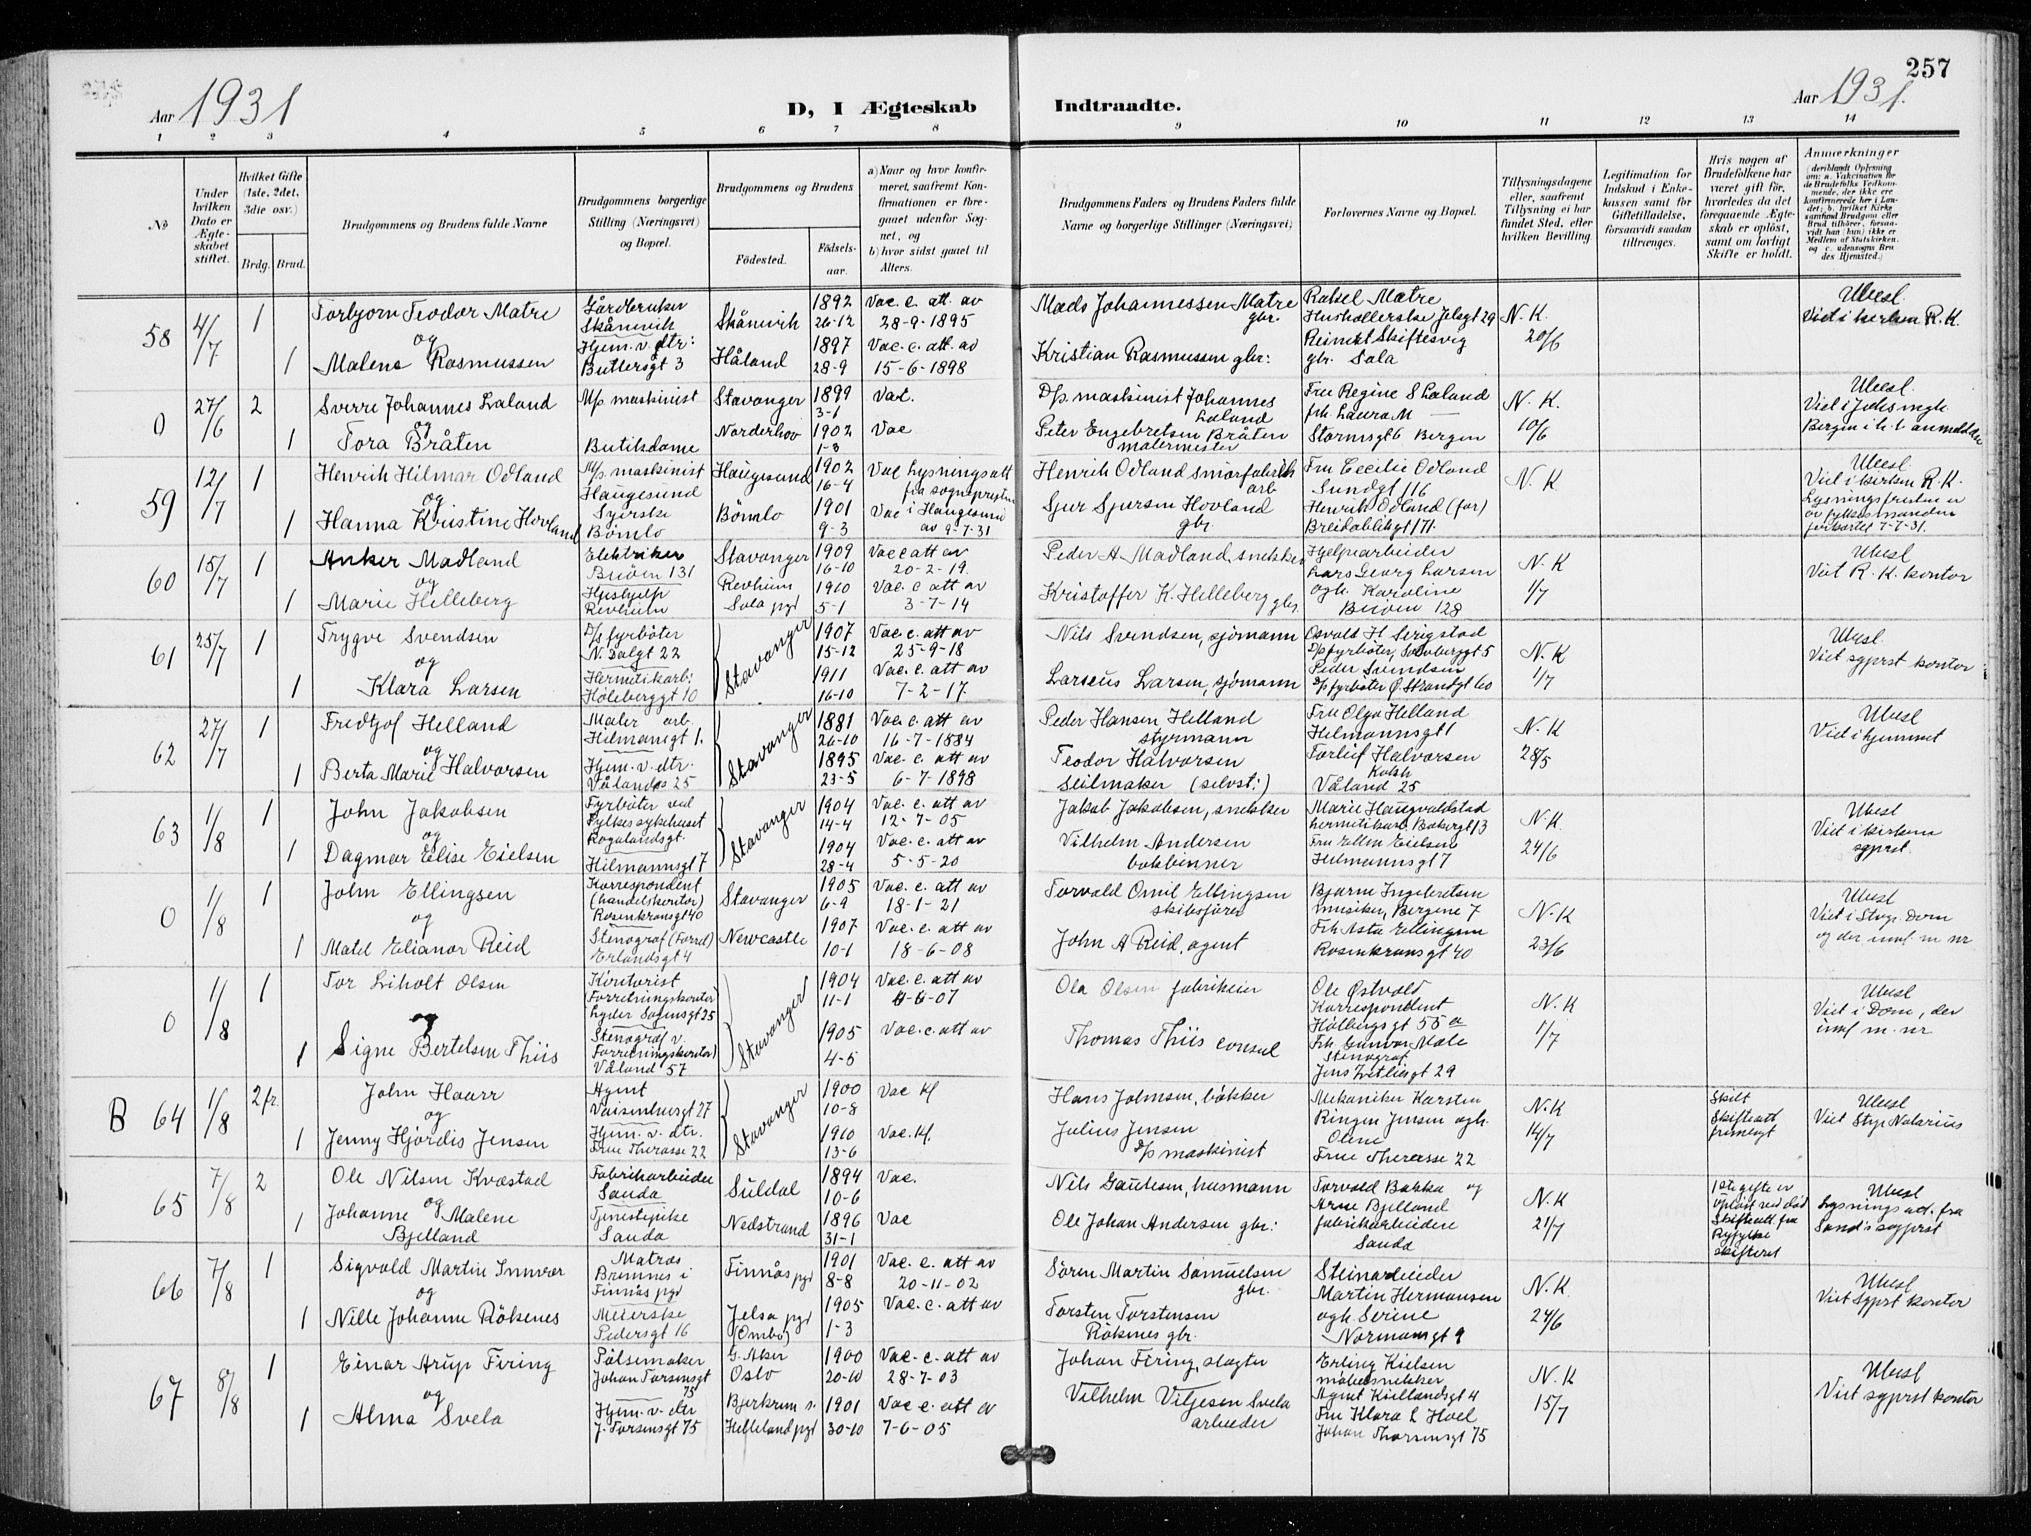 257
Aar 1931
D, I Ægteskab Indtraadte.
Aar 1931.
1 2 3 4 5 6 7 8 9 10 11 12 13 14
No
Under hvilken Dato er Ægteskabet stiftet.
Hvilket Gifte (1ste, 2det, 3die osv.)
Brdg. Brud.
Brudgommens og Brudens fulde Navne
Brudgommens borgerlige Stilling (Næringsvei) og Bopæl.
Brudgommens og Brudens
Fødested. Fødselsaar.
a) Naar og hvor konfirmeret, saafremt Konfirmationen er foregaaet udenfor Sognet, og
b) hvor sidst gaaet til Alters.
Brudgommens Faders og Brudens Faders fulde Navne og borgerlige Stillinger (Næringsvei)
Forlovernes Navne og Bopæl.
Tillysningsdagene eller, saafremt Tillysning ei har fundet Sted, efter hvilken Bevilling.
Legitimation for Indskud i Enkekassen samt for Giftetilladelse, forsaavidt saadan tiltrænges.
Hvis nogen af Brudefolkene har været gift før, hvorledes da det foregaaende Ægteskab er opløst, samt om lovligt Skifte er holdt.
Anmerkninger
(deriblandt Oplysning om: a. Vakcination for de Brudefolks Vedkommende, der ikke ere konfirmerede her i Landet; b. hvilket Kirkesamfund Brudgom eller Brud tilhører, forsaavidt han (hun) ikke er Medlem af Statskirken, og c. udensogns Brudes Hjemsted.)
58 4/7 1 Torbjørn Teodor Matre Gårdbruker Skånevik Skånevik 1892 26-12 Vac. e. att. av 28-9-1895 Mads Johannessen Matre gbr. Rakel Matre Husholderske Jelsgt 29 N. K. 20/6 Ubesl. Viet i kirken R. K.
og
1 Malene Rasmussen Hjem. v. dtr: Buttersgt 3 Håland 1897 28-9 Vac. e. att. av 15-6-1898 Kristian Rasmussen gbr: Skiftesvig gbr. Sola
0 27/6 2 Sverre Johannes Laland M/s maskinist Stavanger 1899 3-1 Vac. D/s maskinist Johannes Laland Fru Regine S Laland frk. Laura M — N. K. 10/6 Ubesl.
og
1 Tora Bråten Butiksdame Norderhov 1902 1-3 Vac Peter Engebretsen Bråten malermester Stormsgt 6 Bergen
59 12/7 1 Henrik Hilmar Odland M/s maskinist Haugesund Haugesund 1902 16-4 Vac Lysningsatt fra sognepresten i Haugesund av 9-7-31 Henrik Odland smørfabrikk arb Fru Cecilie Odland Sundgt 116 N. K Ubesl. Viet i kirken R. K.
og
1 Hanna Kristine Hovland Syerske Bømlo Bømlo 1901 9-3 Vac Sjur Sjursen Hovland gbr. Henrik Odland (far) Breidablikgt 171. Lysningsfristen er av fylkesmannen forkortet 7-7-31.
60 15/7 1 Anker Madland Elektriker Buøen 131 Stavanger 1909 16-10 Vac e att av 20-2-19. Peder A Madland, snekker Hjelpearbeider Lars Georg Larsen N. K 1/7 Ubesl Viet R. K. kontor
og
1 Marie Helleberg Hushjelp Revheim Revheim Sola pgd 1910 5-1 Vac. e att av 3-7-14 Kristoffer K. Helleberg gbr. ogh. Karoline Buøen 128
61 25/7 1 Trygve Svendsen D/s fyrbøter N. Dalgt 22 Stavanger 1907 15-12 Vac. e. att av 25-9-18 Nils Svendsen, sjømann Osvald H Serigstad D/s fyrbøter, Solvberggt 5 N. K 1/7 Ubesl. Viet sgprst kontor
og
1 Klara Larsen Hermetikarb: Høleberggt 10 1911 16-10 Vac. e. att av 7-2-17. Larseus Larsen, sjømann Peder Svendsen D/s fyrbøter Ø. Strandgt 60
62 27/7 1 Fredtjof Helland Maler arb. Hilmansgt 1. Stavanger 1881 26-10 Vac. e. att av 16-7-1884 Peder Hansen Helland styrmann Fru Olga Helland Helmannsgt 1 N. K 28/5 Ubesl Viet i hjemmet
og
1 Berta Marie Halvorsen Hjem. v. dtr. Vålandgs 25 1895 23-5 Vac. e. att av 6-7-1898 Teodor Halvorsen Seilmaker (selvst:) Torleif Halvorsen Våland 25
63 1/8 1 John Jakobsen Fyrbøter ved Fylkessykehuset Rogalandsgt. Stavanger 1904 14-4 Vac. e. att av 12-7-05 Jakob Jakobsen, snekker Marie Haugvaldstad hermetikarb. Bakergt 13 N. K. 24/6 Ubesl Viet i kirken sgprst.
og
1 Dagmar Elise Eielsen Hilmannsgt 7 1904 28-4 Vac. e. att av 5-5-20 Vilhelm Andersen bokbinner Fru Ellen Eielsen Helmannsgt 7
0 1/8 1 John Ellingsen Korrespondent (handelskontor) Rosenkransgt 40 Stavanger 1905 6-9 Vac. e. att av 18-1-21 Torvald Omil Ellingsen skibsfører Bjarne Ingebretsen musiker, Bergene 7 N. K 23/6 Ubesl Viet i Stvgr. Dom og der innf. m nr
og
1 Matel Elianor Reid Stenograf (Forret) Erlandsgt 4 Newcastle 1907 10-1 Vac. e. att av 18-6-08 John A Reid, agent Frk Asta Ellingsen Rosenkransgt 40
0 1/8 1 Tor Liholt Olsen Kontorist (Forretningskontor) Lyder Sagensgt 25 Stavanger 1904 11-1 Vac. e. att av 4-4-07 Ola Olsen fabrikeier Ole Østvold Korrespondent Holbergsgt 55 a N. K 1/7 Ubesl Viet i Dom, der innf m. nr.
og
1 Signe Bertelsen Thiis Stenograf v. Forretningskontor) Våland 57 1905 4-5 Vac. e. att av Thomas Thiis consul Frk. Gunvor Male Stenograf Jens Zetlitzgt 29
B 64 1/8 2 fr. John Haarr Agent Vaisenhusgt 27 Stavanger 1900 10-8 Vac Kf Hans Johnsen, bøkker Mekaniker Karsten Ringen Jensen ogh. Olene N. K 14/7 Skilt Skifteatt fremlagt Ubesl Viet Stvgr Notarius
og
1 Jenny Hjørdis Jensen Hjem. v. dtr. Frue Therasse 22 1910 13-6 Vac. Kf. Julius Jensen D/s maskinist Frue Therasse 22
65 7/8 2 Ole Nilsen Kvæstad Fabrikarbeider Sauda Suldal 1894 10-6 Vac. Nils Gautesen, husmann Torvald Bakka og Arne Bjelland fabrikarbeidere Sauda N. K 21/7 1ste gifte er opløst ved død Skifteatt. fra Ryfylke skifteret Ubesl Lysningsatt. fra Sand's sogprst
og
1 Johanne Malene Bjelland Tjenestepike Sauda Nedstrand 1896 31-1 Vac Ole Johan Andersen gbr:
66 7/8 1 Sigvald Martin Innvær Matros Bremnes i Finnås pgd Finnås pgd 1901 8-8 Vac. e. att av 20-11-02 Søren Martin Samuelsen gbr. Steinarbeider Martin Hermansen N. K. 24/6 Ubesl Viet Sgprst kontor
og
1 Nille Johanne Røksnes Meierske Pedersgt 16 Jelsa pgd (Ombo) 1905 1-3 Vac. e. att av Torsten Torstensen Røksnes gbr. ogh. Serine Normansgt 9
67 8/8 1 Einar Arup Firing Pølsemaker Johan Torsensgt 75 G. Aker Oslo 1900 20-10 Vac. e. att av 28-7-03 Johan Firing, slagter Erling Kielsen møbelsnekker Agent Kiellandsgt 4 N. K 15/7 Ubesl Viet sgprst kontor
og
1 Alma Svela Hjem. v. dtr J. Torsensgt 75 Bjerkrem s. Helleland pgd 1901 30-10 Vac e. att av 7-6-05 Vilhelm Viljesen Svela arbeider Fru Klara L Hoel Johan Thorsensgt 75